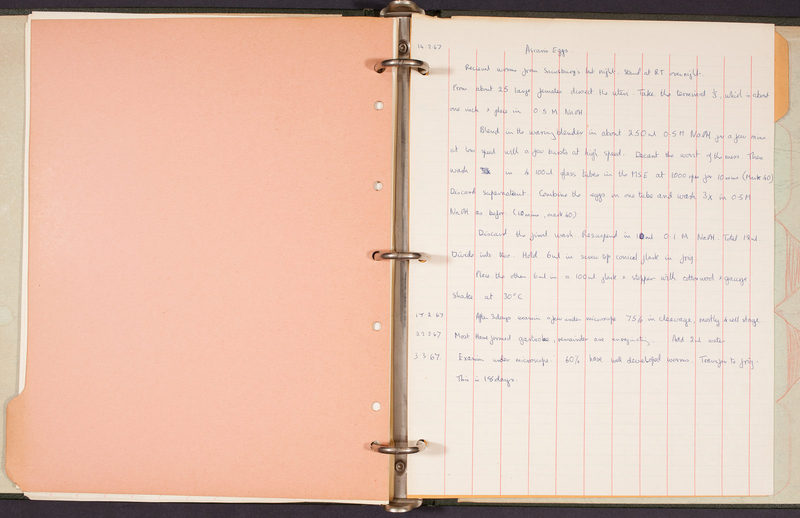 14.2.67 Ascaris Eggs.
Received worms from Sainsburys last night. Stand at RT overnight.
From about 25 large females dissect the uteri. Take the terminal 1/3, which is about
one inch & place in 0.5 M NaOH
Blend in the waring blender in about 250 ml 0.5 M NaOH for a few mins
at low speed with a few bursts at high speed. Decant the worst of the mess. Then
wash in 4 100ml glass tubes in the MSE at 1000 rpm for 10 mins (Mark 40)
Discard supernatant. Combine the eggs in one tube and wash 3x in 0.5M
NaOH as before. (10 mins, mark 40)
Discard the final wash. Resuspend in 10ml 0.1 M NaOH. Total 12ml.
Divide into two. Hold 6ml in screw top conical flask in frig.
Place the other 6ml in a 100ml flask & stopper with cottonwool & gauze
shake at 30°C
17.2.67 After 3 days examine a few under microscope 75% in cleavage, mostly 4 cell stage.
22.2.67 Most have formed gastrulae, remainder are Add 2ml water
3.3.67. Examine under microscope. 60% have well developed worms. Transfer to frig.
This is 18 days.